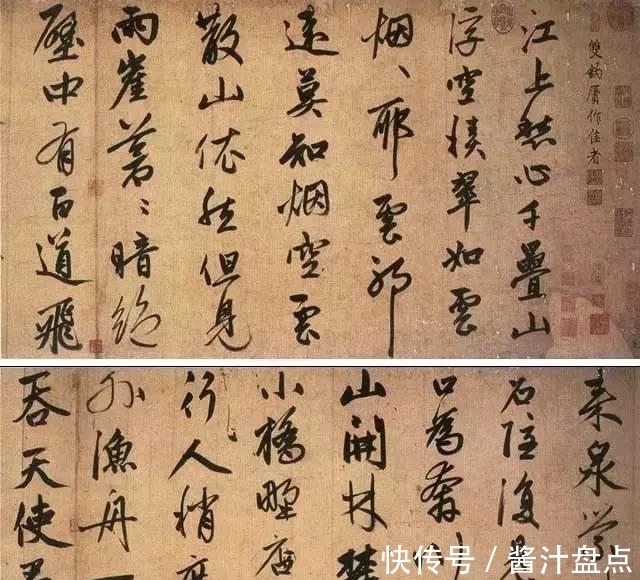 雙鈎贗作佳者
江上愁心千疊山
浮空積翠如雲
烟、耶雲耶
遠莫知烟空雲
散山依然但見
兩崖蒼、暗絕
中有百道飛
来泉
石隱復見
口為奔川
山開林
小橋野店
行人稍度
外漁舟
吞天使君
快传号/酱汁盘点